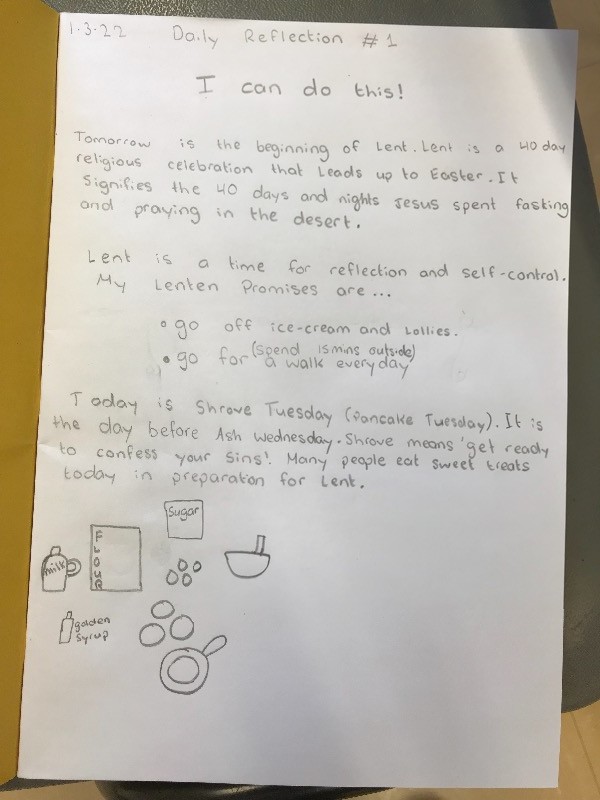 1.3.22 Daily Reflection #1
I can do this!
Tomorrow is the beginning of Lent. Lent is a 40 day
religious celebration that leads up to Easter. It
signifies the 40 days and nights Jesus spent fasting
and praying in the desert.
Lent is a time for reflection and self-control.
My Lenten Promises are...
• go off ice-cream and lollies.
(spend 15mins outside)
• go for a walk everyday
Today is Shrove Tuesday (Pancake Tuesday). It is
the day before Ash Wednesday. Shrove means 'get ready
to confess your sins'. Many people eat sweet treats
today in preparation for Lent.
Sugar
FLOUR
milk
golden
syrup